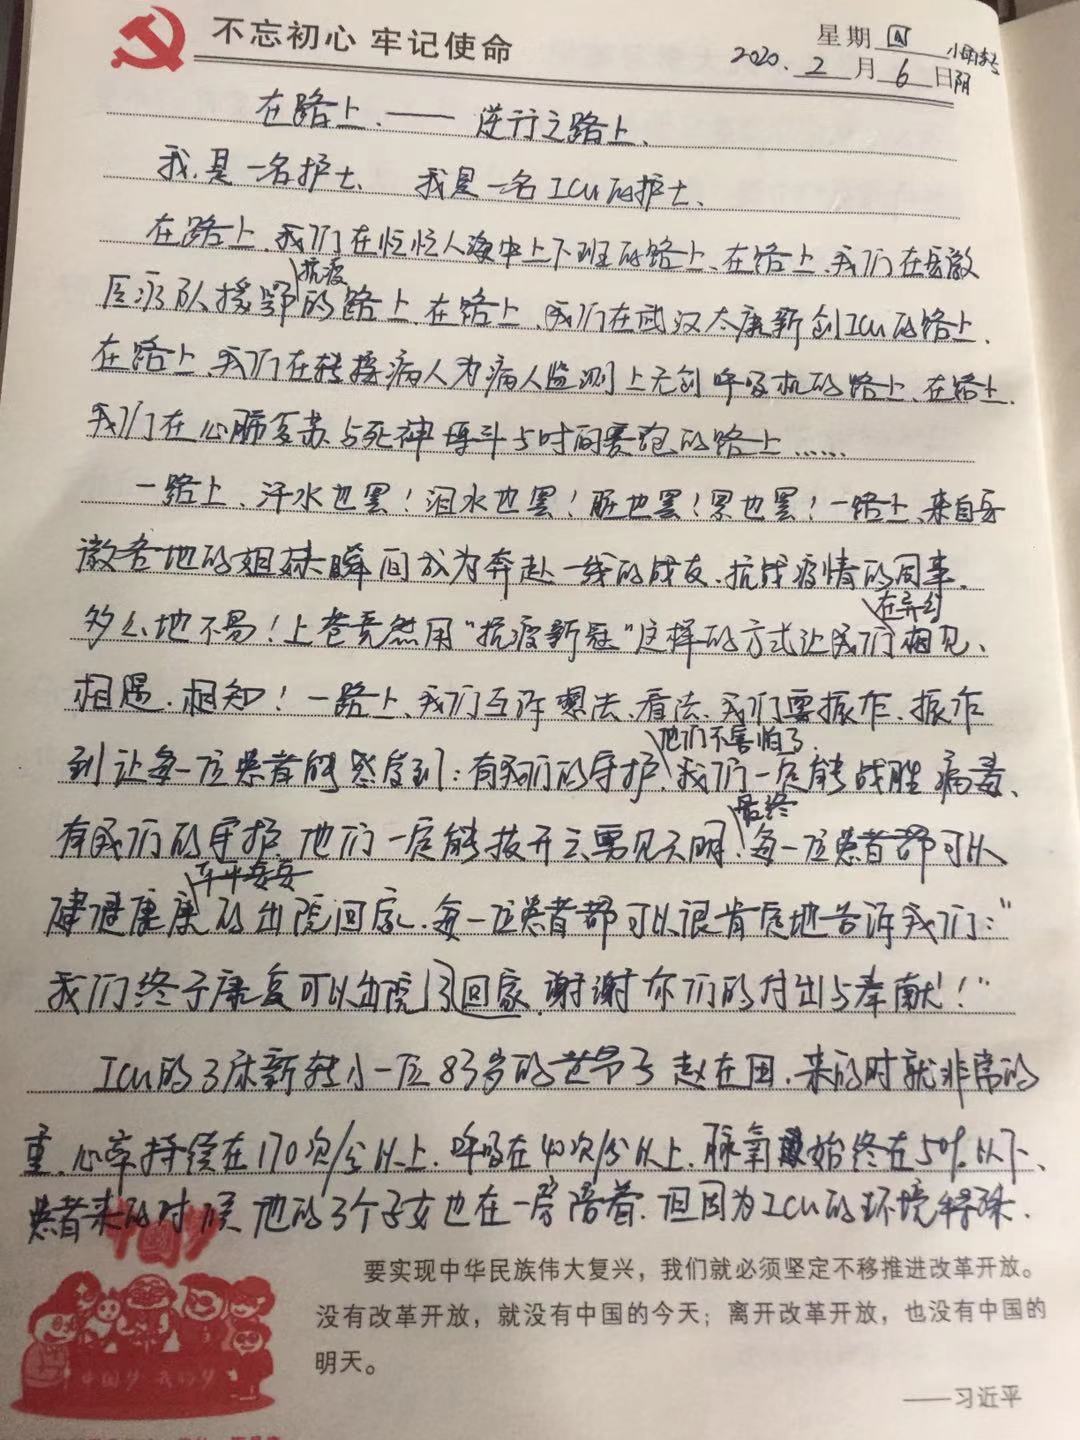 不忘初心 牢记使命
星期四 小雨转阴
2020.2月6日
在路上、——逆行之路上、
我是一名护士、 我是一名ICU的护士、
在路上、我们在忙忙人海中上下班的路上、在路上、我们在安徽
医疗队援鄂抗疫的路上、在路上、我们在武汉太康新创ICU的路上、
在路上、我们在转接病人为病人监测上无创呼吸机的路上、在路上、
我们在心肺复苏与死神博斗与时间赛跑的路上……
一路上、汗水也罢!泪水也罢!脏也罢!累也罢!一路上、来自安
徽各地的姐妹瞬间成为奔赴一线的战友、抗战疫情的同事。
多么地不易!上苍竟然用“抗疫新冠”这样的方式让我们在异乡相见、
相遇、相知!一路上、我们互诉想法、看法、我们要振作、振作
到让每一位患者能感受到:有我们的守护、他们不害怕了、我们一定能战胜病毒、
有我们的守护、他们一定能拨开云雾见天明、最终每一位患者都可以
健健康康平平安安的出院回家、每一位患者都可以很肯定地告诉我们:“
我们终于康复可以出院了回家、谢谢你们的付出与奉献!”
ICU的3床新转一位83岁的老爷子赵在田、来的时就非常的
重、心率持续在170次/分以上、呼吸在40次/分以上、脉氧始终在50%以下、
患者来的时候他的3个子女也在一旁陪着、但因为ICU的环境特殊、
中国梦
中国梦 我的梦
要实现中华民族伟大复兴，我们就必须坚定不移推进改革开放。
没有改革开放，就没有中国的今天；离开改革开放，也没有中国的
明天。
——习近平